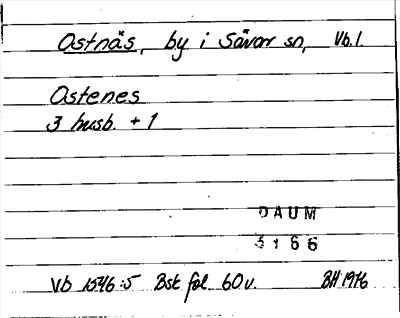 Ostnäs, by i Sävar sn, Vb.l.
Ostenes
3 husb. + 1
DAUM
3166
Vb 1546:5 Bsk fol. 60v. BH 1976